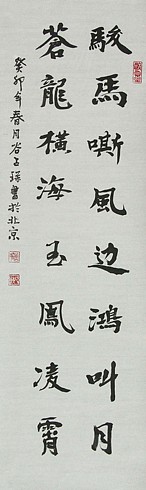 駿馬嘶風边鴻叫月
蒼龍橫海玉鳳凌霄
癸卯年春月谷子瑞書於北京